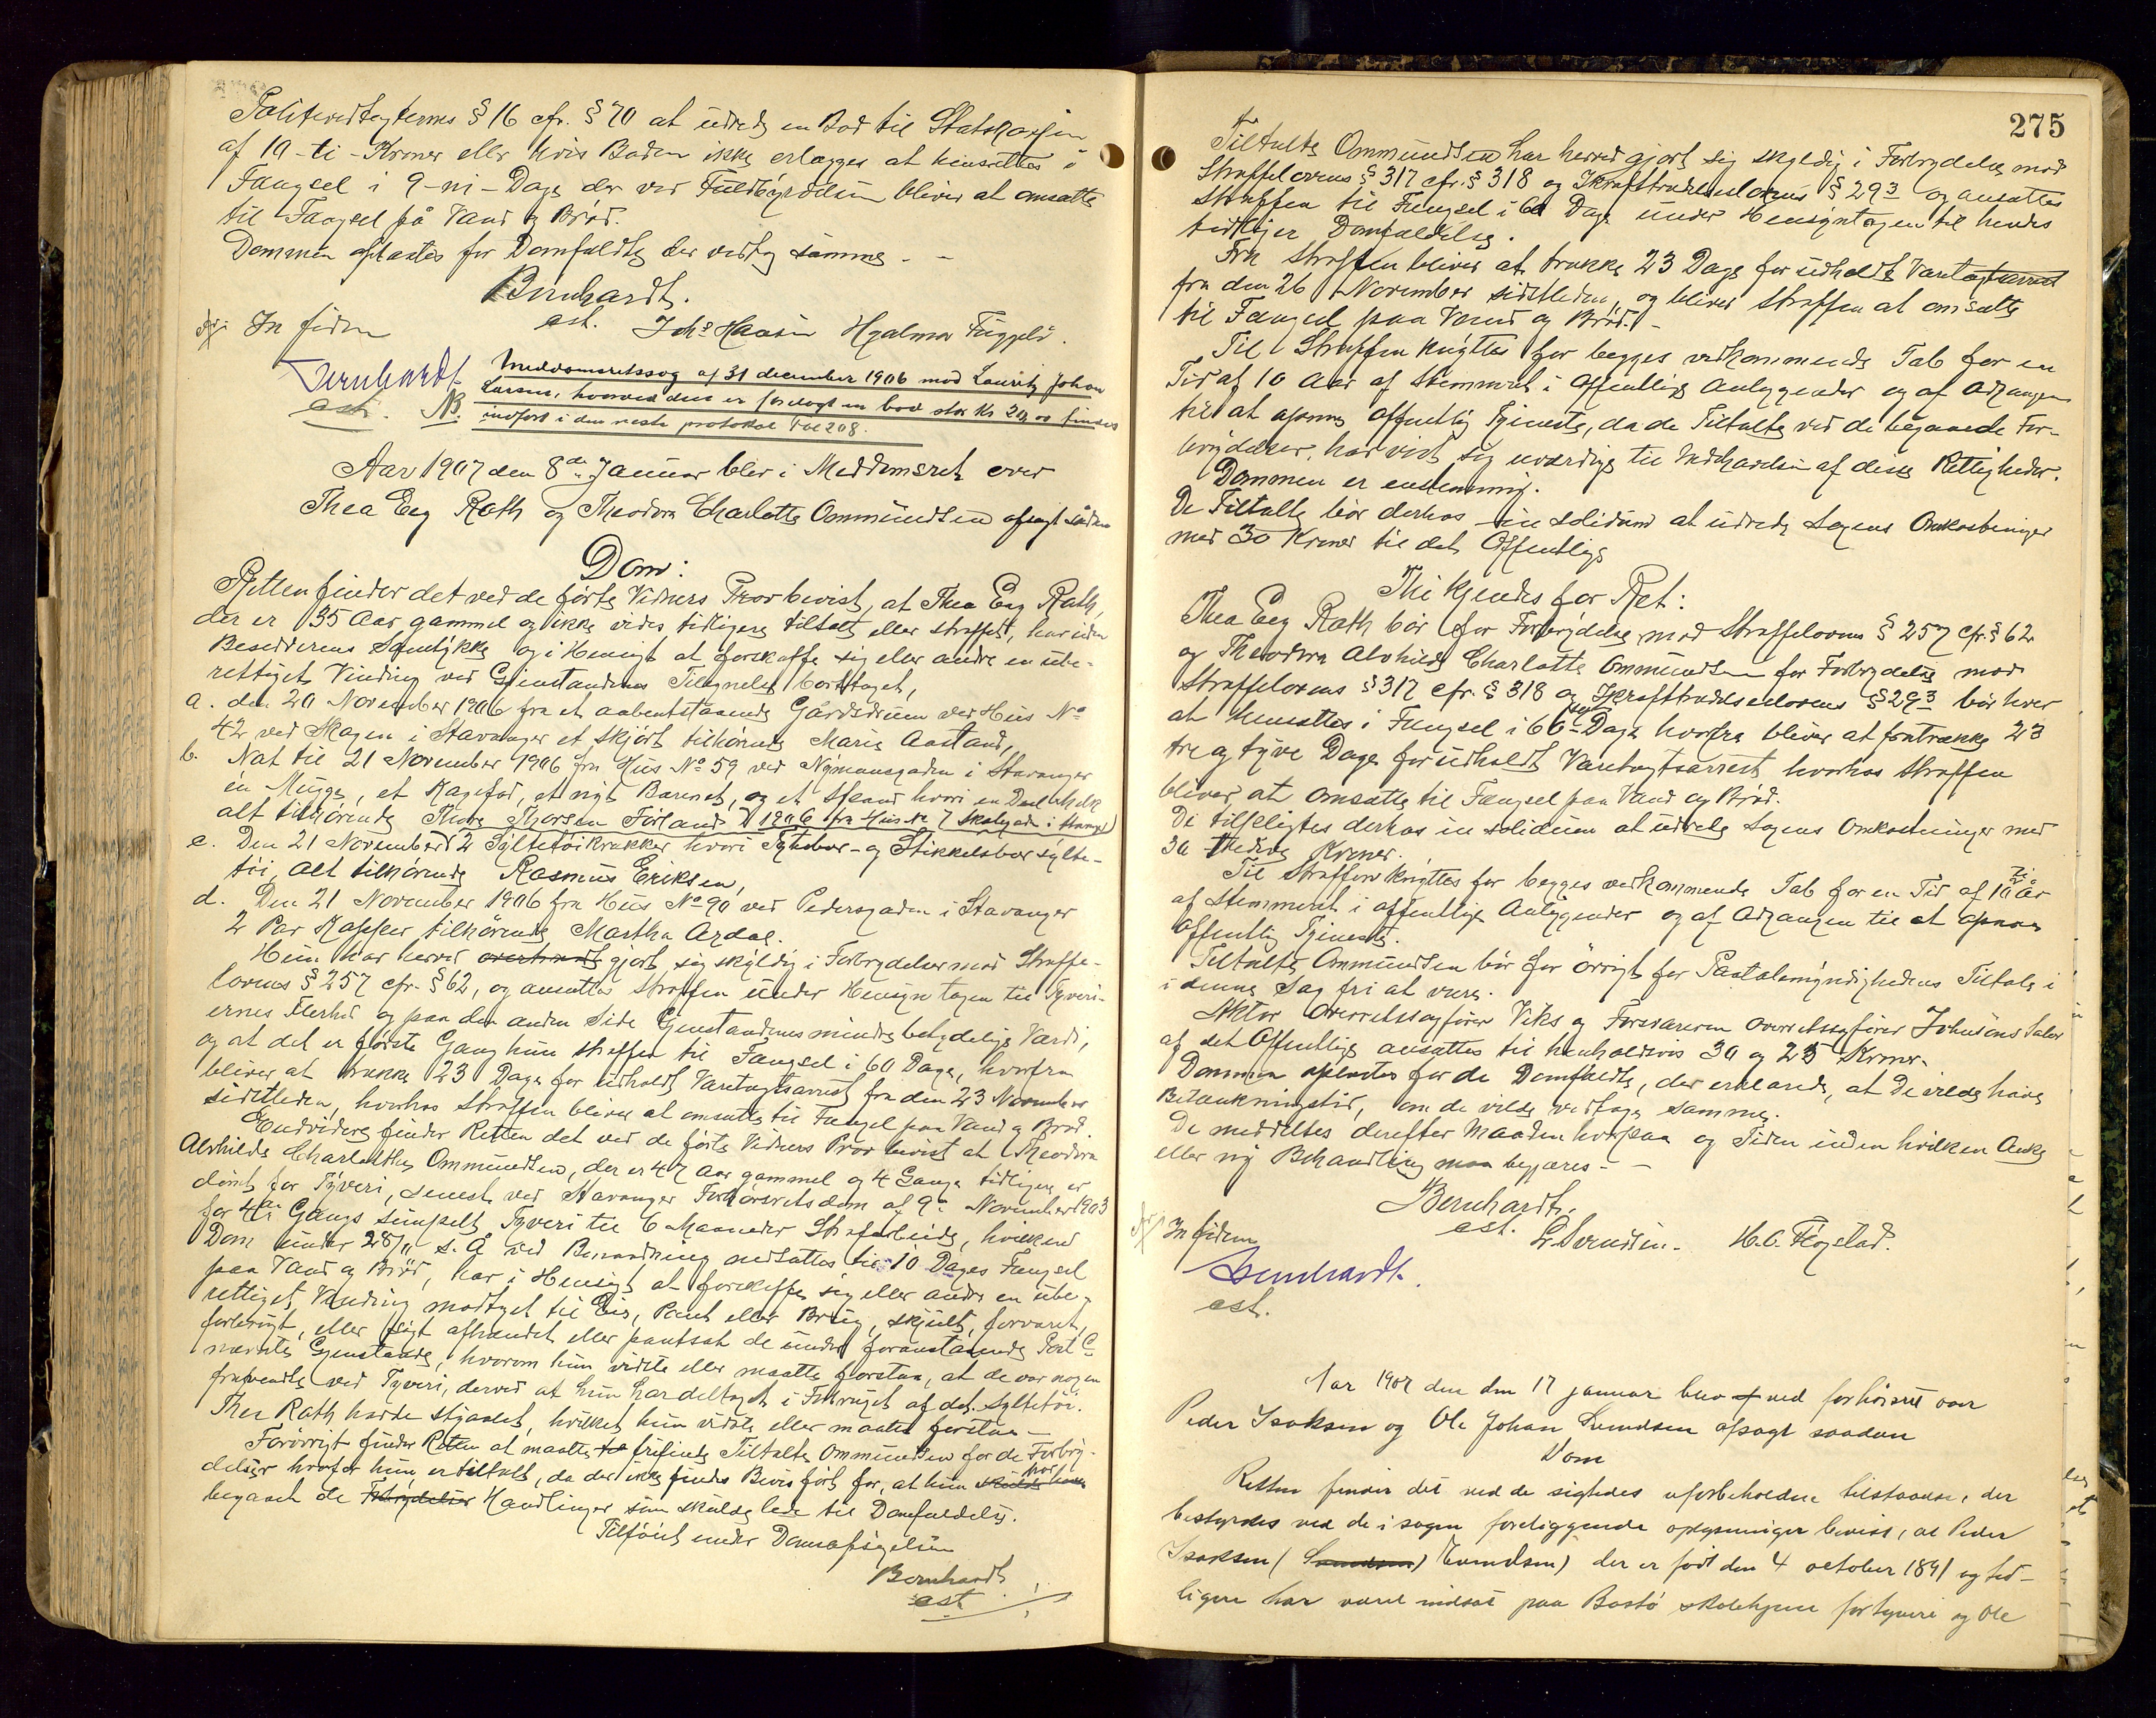 Politivedtægternes § 16 cfr. § 70 at udrede en Bod til Statskassen
af 10 - ti - Kroner eller hvis Boden ikke erlægges at hensættes i
Fængsel i 9 - ni - Dage der ved Fuldbyrdelsen bliver at omsætte
til Fængsel på Vand og Brød.
Dommen oplæstes for Domfældte der vedtog samme. -
Bernhardt.
cst. Johs Hansen Hjalmar
In fidem
Bernhardt
cst.
NB. Meddomsretssag af 31 december 1906 mod Lauritz Johan
Larsen, hvorved den er forelagt en bod stor Kr 20,00 findes
indført i den neste protokol Fol 208.
Aar 1907 den 8de Januar blev i Meddomsret over
Thea Eeg Rath og Theodora Charlotte Ommundsen afsagt sådan
Dom:
Retten finder det ved de førte Vidners Prov bevist, at Thea Eeg Rath,
der er 35 Aar gammel og ikke vides tidligere tiltalt eller straffet, har uden
Besidderens Samtykke og i Hensigt at forskaffe sig eller andre en ube-
rettiget Vinding ved Gjenstandenes Tilegnelse borttaget,
a. den 20 November 1906 fra et aabentstaaende Gårdsrum ved Hus No
42 ved Skagen i Stavanger et Skjørt tilhørende Marie Aastand,
b. Nat til 21 November 1906 fra Hus No 59 ved Nymansgaden i Stavanger
en Mugge, et Kagefad, et nyt Barenet, og et Spand hvori en Del Melk
alt tilhørende Thore Thorsen Førland
c. Den 21 November 1906 fra Hus No 7 Skolegade i Stavanger 2 Syltetøikrukker hvori Tytebær- og Stikkelsbær sylte-
tøi, alt tilhørende Rasmus Eriksen,
d. Den 21 November 1906 fra Hus No 90 ved Pedersgaden i Stavanger
2 Par Kapper tilhørende Martha Azdal.
Hun har herved gjort sig skyldig i Forbrydelser mod Straffe-
lovens § 257 cfr. § 62, og ansættes Straffen under Hensyntagen til Tyveri-
ernes Flerhed og paa den anden Side Gjenstandenes mindre betydelige Værdi,
og at det er første Gang hun straffes til Fængsel i 60 Dage, hvorfra
bliver at trække 23 Dage for udholdt Varetægtsarrest fra den 23 November
sidstleden, hvorhos Straffen bliver at omsætte til Fængsel paa Vand og Brød.
Endvidere finder Retten det ved de førte Vidners Prov bevist at Theodora
Alvhilde Charlotte Ommundsen, der er 47 Aar gammel og 4 Gange tidligere er
dømt for Tyveri, senest ved Stavanger Forhørsretsdom af 9de November 1903
for 4de Gangs simpelt Tyveri til 6 Maaneder Strafarbeide, hvilken
Dom under 28/11 s. Å ved Benaadning nedsattes til 10 Dages Fængsel
paa Vand og Brød, har i Hensigt at forskaffe sig eller andre en ube-
rettiget Vinding modtaget til Eie, Pant eller Brug, skjult, forvaret,
forbrugt, eller søgt afhændet eller pantsat de under foranstaaende Post c
nævnte Gjenstande, hvorom hun vidste eller maatte forstaa, at de var nogen
fravendte ved Tyveri, derved at hun har deltaget i Forbruget af det Syltetøi.
Thea Rath havde stjaalet, hvilket hun vidste eller maatte forstaa -
Forøvrigt finder Retten at maatte frifinde Tiltalte Ommundsen for de Forbry-
delser hvorfor hun er tiltalt, da der ikke findes Bevis ført for, at hun har
begaaet de Handlinger som skulde lede til Domfældelse.
Tilført under Domsafsigelsen
Bernhardt
cst.
275
Tiltalte Ommundsen har herved gjort sig skyldig i Forbrydelse mod
Straffelovens § 317 cfr. § 318 og Ikrafttrædelseslovens § 29 3 og ansættes
Straffen til Fængsel i 60 Dage under Hensyntagen til hendes
tidligere Domfældelse.
Fra Straffen bliver at trække 23 Dage for udholdt Varetægtsarrest
fra den 26 November sidstleden, og bliver Straffen at omsætte
til Fængsel paa Vand og Brød. -
Til Straffen knyttes for begges vedkommende Tab for en
Tid af 10 Aar af Stemmeret i offentlige Anliggender og af Adgangen
til at opnaa offentlig Tjeneste, da de Tiltalte ved de begaaede For-
brydelser har vist sig uværdige til Indehavelsen af disse Rettigheder.
Dommen er enstemmig.
De Tiltalte bør derhos in solidum at udrede Sagens Omkostninger
med 30 Kroner til det Offentlige
Thi kjendes for Ret:
Thea Eeg Rath bør for Forbrydelse mod Straffelovens § 257 cfr. § 62
og Theodora Alvhilde Charlotte Ommundsen for Forbrydelse mod
Straffelovens § 317 cfr. § 318 og Ikrafttrædelseslovens § 29 3 bør hver
at hensættes i Fængsel i 60 Dage hvorfra bliver at fratrække 23
tre og tyve Dage for udholdt Varetægtsarrest hvorhos Straffen
bliver at omsætte til Fængsel paa Vand og Brød.
De tilpligtes derhos in solidum at udrede Sagens Omkostninger med
30 tredive Kroner.
Til Straffen knyttes for begges vedkommende Tab for en Tid af 10 ti år
af Stemmeret i offentlige Anliggender og af Adgangen til at opnaa
offentlig Tjeneste.
Tiltalte Ommundsen bør for øvrigt for Paatalemyndighedens Tiltale i
i denne Sag fri at være.
Aktor Overretssagfører Viks og Forsvareren Overretssagfører Johnsons Salær
af det Offentlige ansættes til henholdsvis 30 og 25 Kroner.
Dommen oplæstes for de Domfældte, der erklærede, at de vilde have
Betænkningstid, om de vilde vedtage samme.
De meddeltes derefter Maaden hvorpaa og Tiden inden hvilken Anke
eller ny Behandling maa begjæres. -
Bernhardt.
cst. L. Svendsen. H. C. Fløgstad.
In fidem
Bernhardt.
cst.
Aar 1907 den den 17 januar blev ved forhørsret over
Peder Isaksen og Ole Johan Lundsen afsagt saadan
Dom
Retten finder det ved de sigtedes uforbeholdne tilstaaelse, der
bestyrkes ved de i sagen foreliggende oplysninger bevist, at Peder
Isaksen ( ) der er født den 4 october 1891 og tid-
ligere har været indsat paa Bastø skolehjem for tyveri og Ole